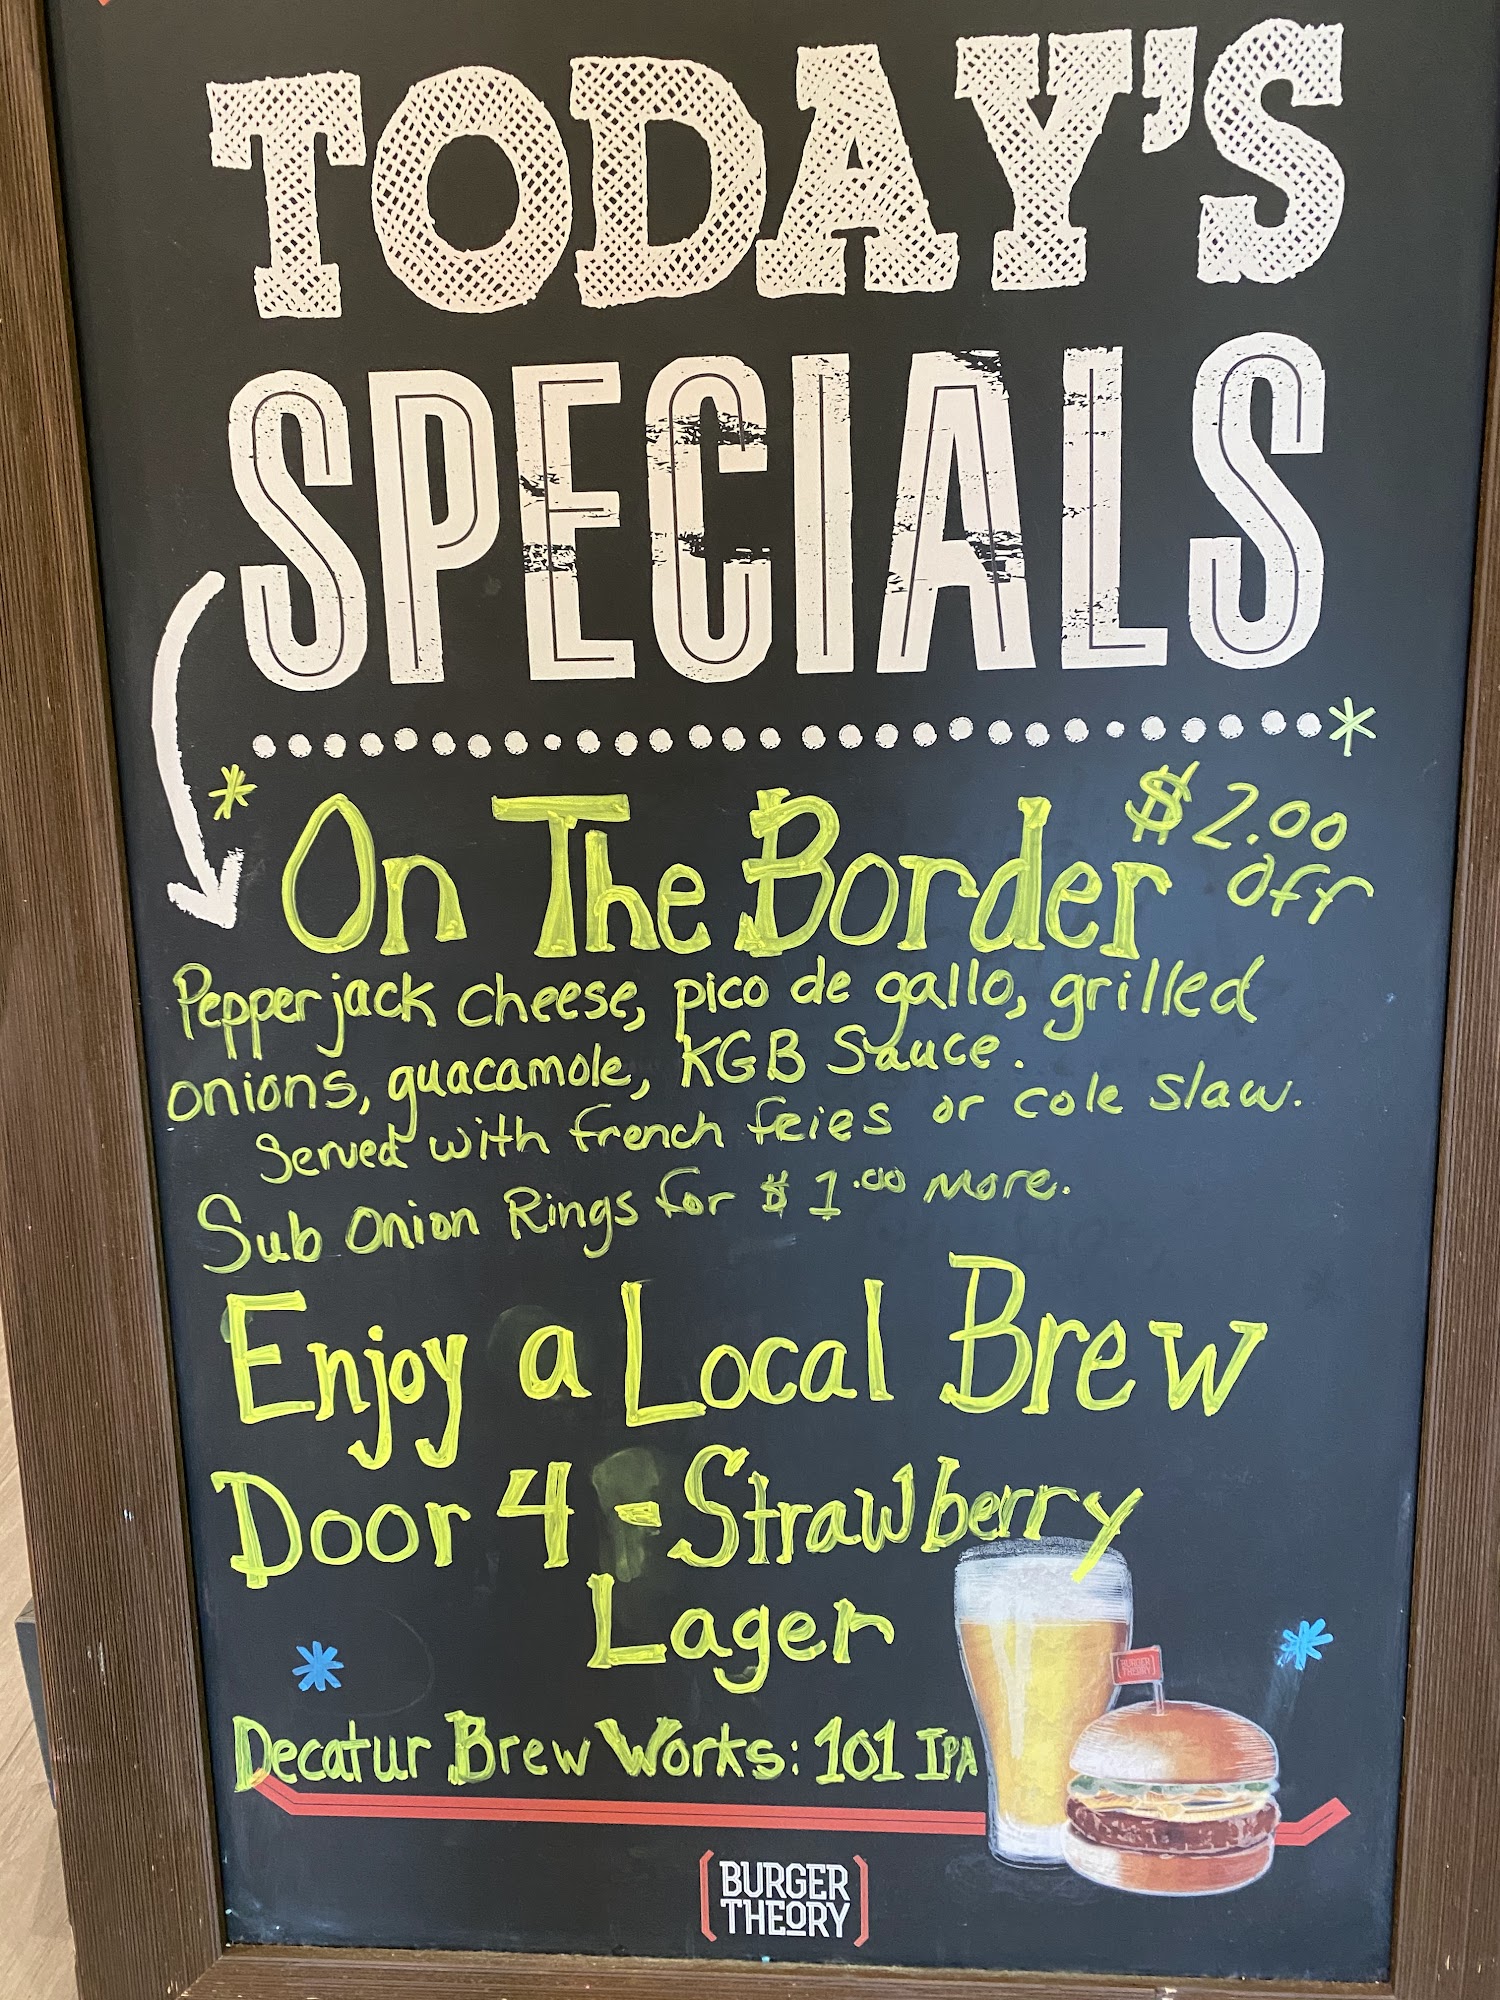 TODAY'S
SPECIALS
On The Border $2.00 Off
Pepperjack cheese, pico de gallo, grilled
onions, guacamole, KGB Sauce.
Served with french feies or cole slaw.
Sub Onion Rings for $1.00 More.
Enjoy a Local Brew
Door 4 - Strawberry
Lager
Decatur Brew Works: 101 IPA
BURGER
THEORY
BURGER
THEORY